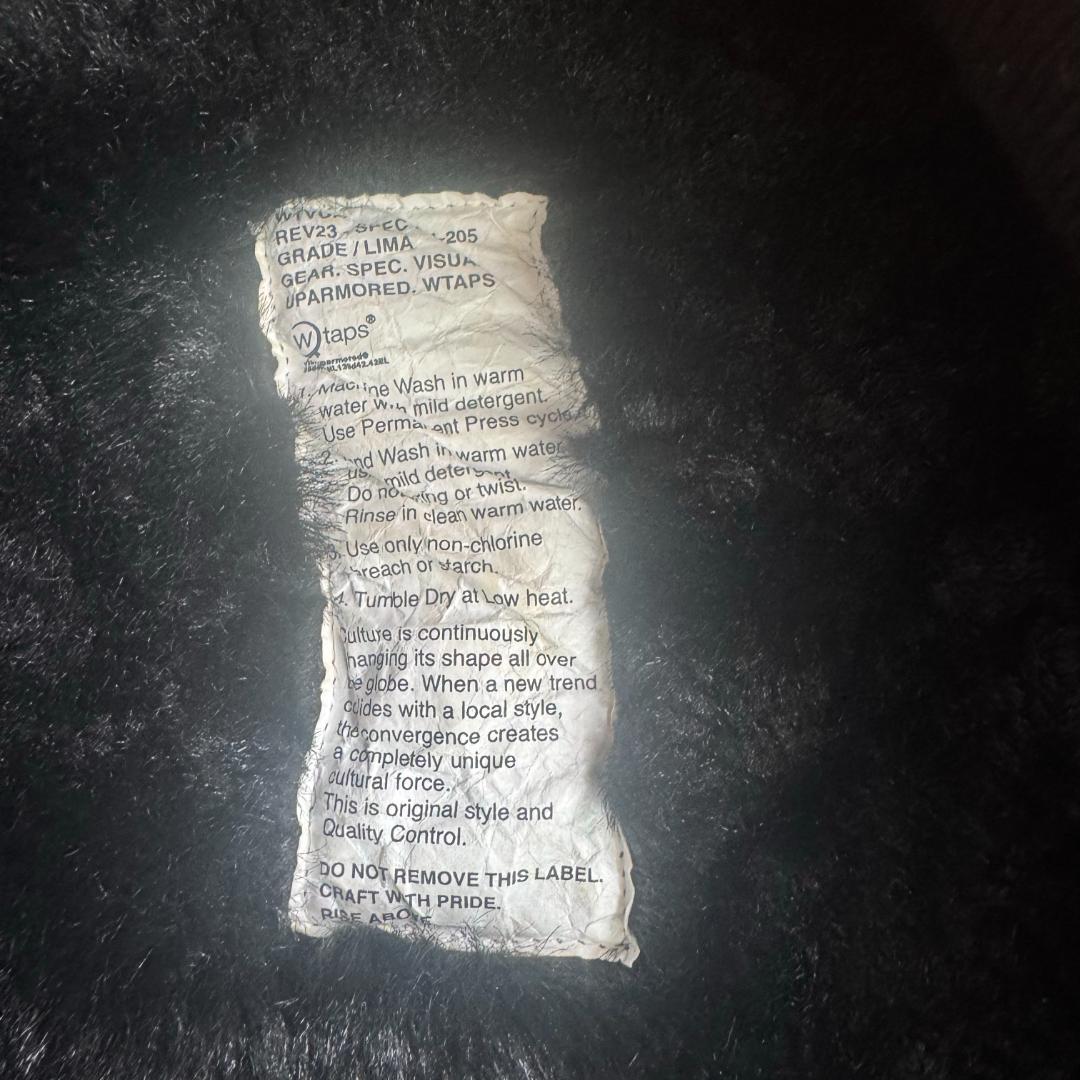 REV23 - SPEC -205
GRADE / LIMA
GEAR. SPEC. VISUA
UPARMORED. WTAPS
Wtaps®
1. Machine Wash in warm
water with mild detergent.
Use Permanent Press cycle.
2. Hand Wash in warm water
mild detergent.
Do not wring or twist.
Rinse in clean warm water.
3. Use only non-chlorine
or starch.
4. Tumble Dry at Low heat.
Culture is continuously
changing its shape all over
the globe. When a new trend
collides with a local style,
the convergence creates
a completely unique
cultural force.
This is original style and
Quality Control.
DO NOT REMOVE THIS LABEL.
CRAFT WITH PRIDE.
RISE ABOVE